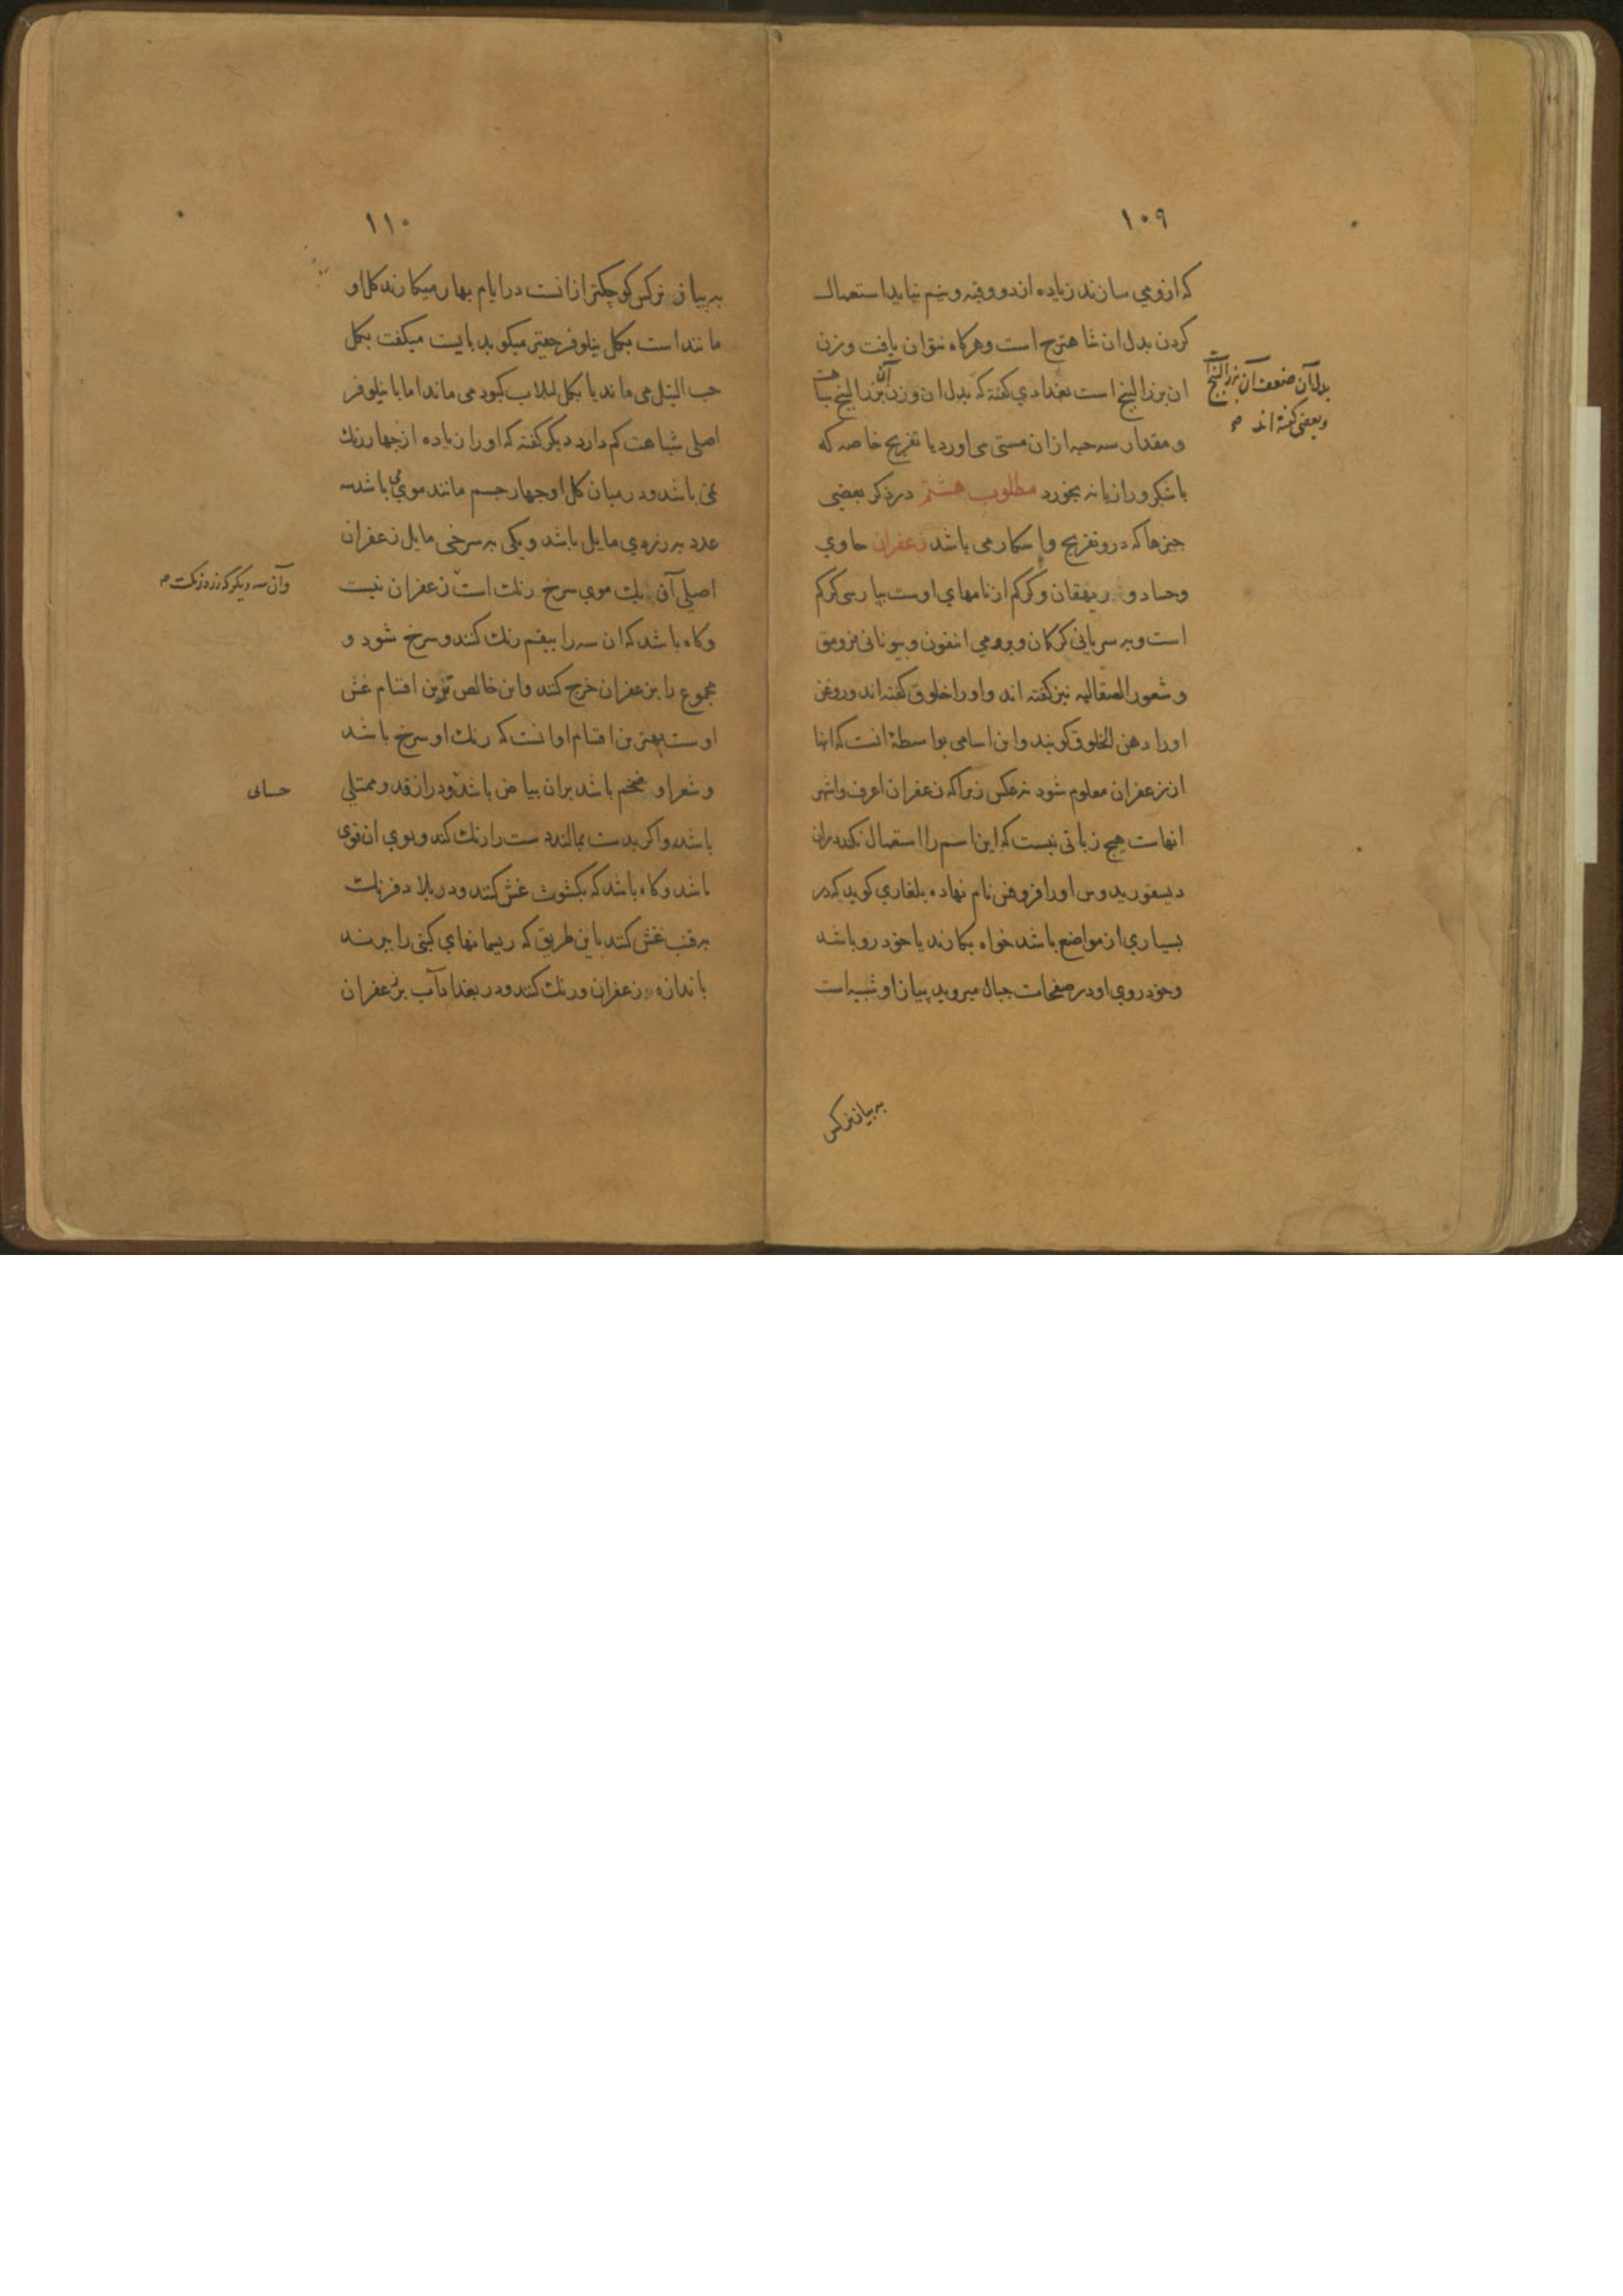 ۱۰۹
که ازو می سازند زیاده از دو وقیه و نیم نباید استعمال
کردن بدل ان شاهترج است و هرکاه نتوان یافت وزن
ان بزر البنج است بغدادی کفته که بدل ان وزن آن بزر البنج
بدل آن ضعف آن بزر البنج است
و بعضی کفته اند
و مقدار سه حبه از ان مستی می اورد با تفریح خاصه که
با شکر و رازیانه بخورد مطلوب هشتم در ذکر بعضی
جیزها که درو تفریح و اسکار می باشد زعفران حاوی
وجساد و ریهقان و کرکم از نامهای اوست بپارسی کرکم
است و به سریانی کرکان و برومی و بیونانی
و شعور الصقالبه نیز کفته اند و اورا خلوق کفته اند و روغن
اورا دهن الخلوق کویند و این اسامی بواسطهٔ انست که اینها
از زعفران معلوم شود نه عکس زیرا که زعفران اعرف و اشهر
انهاست هیچ زبانی نیست که این اسم را استعمال نکند دران
دیسقوریدوس اورا نام نهاده بلغاری کوید که در
بسیاری از مواضع باشد خواه بکارند یا خودرو باشد
و خودروی او در صفحات جبال میروید پیاز او شبیه است
به پیاز نرکس
۱۱۰
به پیاز نرکس کوچکتر ازانست در ایام بهار میکارند کل او
مانند است بکل نیلوفر میکوید بایست میکفت بکل
حب النیل می ماند یا بکل لبلاب کبود می ماند اما با نیلوفر
اصلی شباهت کم دارد دیکر کفته که اورا زیاده از جهار
نمی باشد و در میان کل او جهار جسم مانند موی می باشد سه
عدد به زردی مایل باشد و یکی به سرخی مایل زعفران
اصلی آن یک موی سرخ رنک است زعفران نیست
وآن سه دیکر که زرد رنکست
و کاه باشد که ان سه را ببقم رنک کنند و سرخ شود و
مجموع را بزعفران خرج کنند و این خالص ترین اقسام غش
اوست بهترین اقسام او انست که رنک او سرخ باشد
و شعر او ضخیم باشد بران بیاض باشد و دراز قد و ممتلی
باشد و اکر بدست بمالند دست را رنک کند و بوی ان قوی
باشد و کاه باشد که بکشوث غش کنند و در بلاد فرنک
به قنب غش کنند باین طریق که ریسمانهای کبنی را ببرند
باندازه زعفران و رنک کنند و در بغداد آب بر زعفران